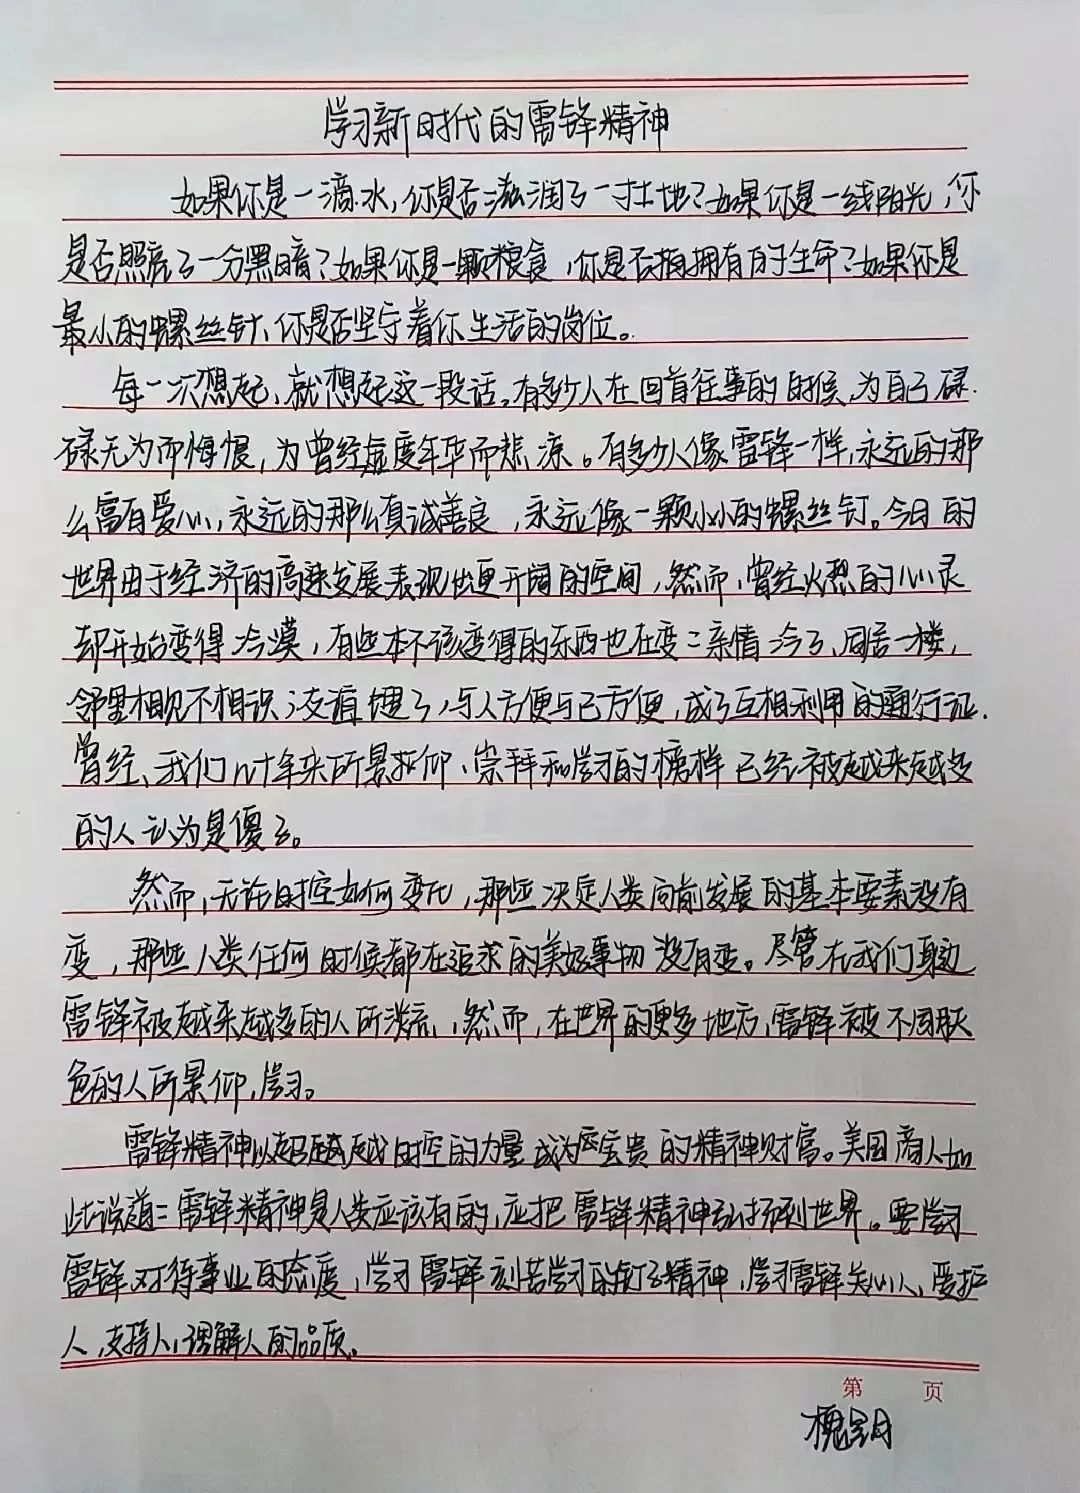 学习新时代的雷锋精神
如果你是一滴水，你是否滋润了一寸土地？如果你是一线阳光，你
是否照亮了一分黑暗？如果你是一颗粮食，你是否哺拥有用生命？如果你是
最小的螺丝钉、你是否坚守着你生活的岗位。
每一次想起，就想起这一段话。有多少人在回首往事的时候，为自己碌
碌无为而悔恨，为曾经虚度年华而悲凉。有多少人像雷锋一样，永远的那
么富有爱心，永远的那么真诚善良，永远像一颗小小的螺丝钉。今日的
世界由于经济的高速发展表现出更开阔的空间，然而，曾经火热的心灵
却开始变得冷漠，有些本不该变得的东西也在变：亲情冷了，同居一楼，
邻里相见不相识；友谊埋了，与人方便与己方便，成了互相利用的通行证.
曾经、我们几十年来所景仰、崇拜和学习的榜样已经被越来越多
的人认为是傻子。
然而，无论时空如何变化，那些决定人类向前发展的基本要素没有
变，那些人类任何时候都在追求的美好事物没有变。尽管在我们身边
雷锋被越来越多的人所淡忘，然而，在世界的更多地方，雷锋被不同肤
色的人所景仰，学习。
雷锋精神以超越时空的力量成为宝贵的精神财富。美国商人如
此说道：雷锋精神是人类应该有的，应把雷锋精神弘扬到世界。要学习
雷锋对待事业的态度，学习雷锋刻苦学习的钉子精神，学习雷锋关心人、爱护
人，支持人，理解人的品质。
第 页